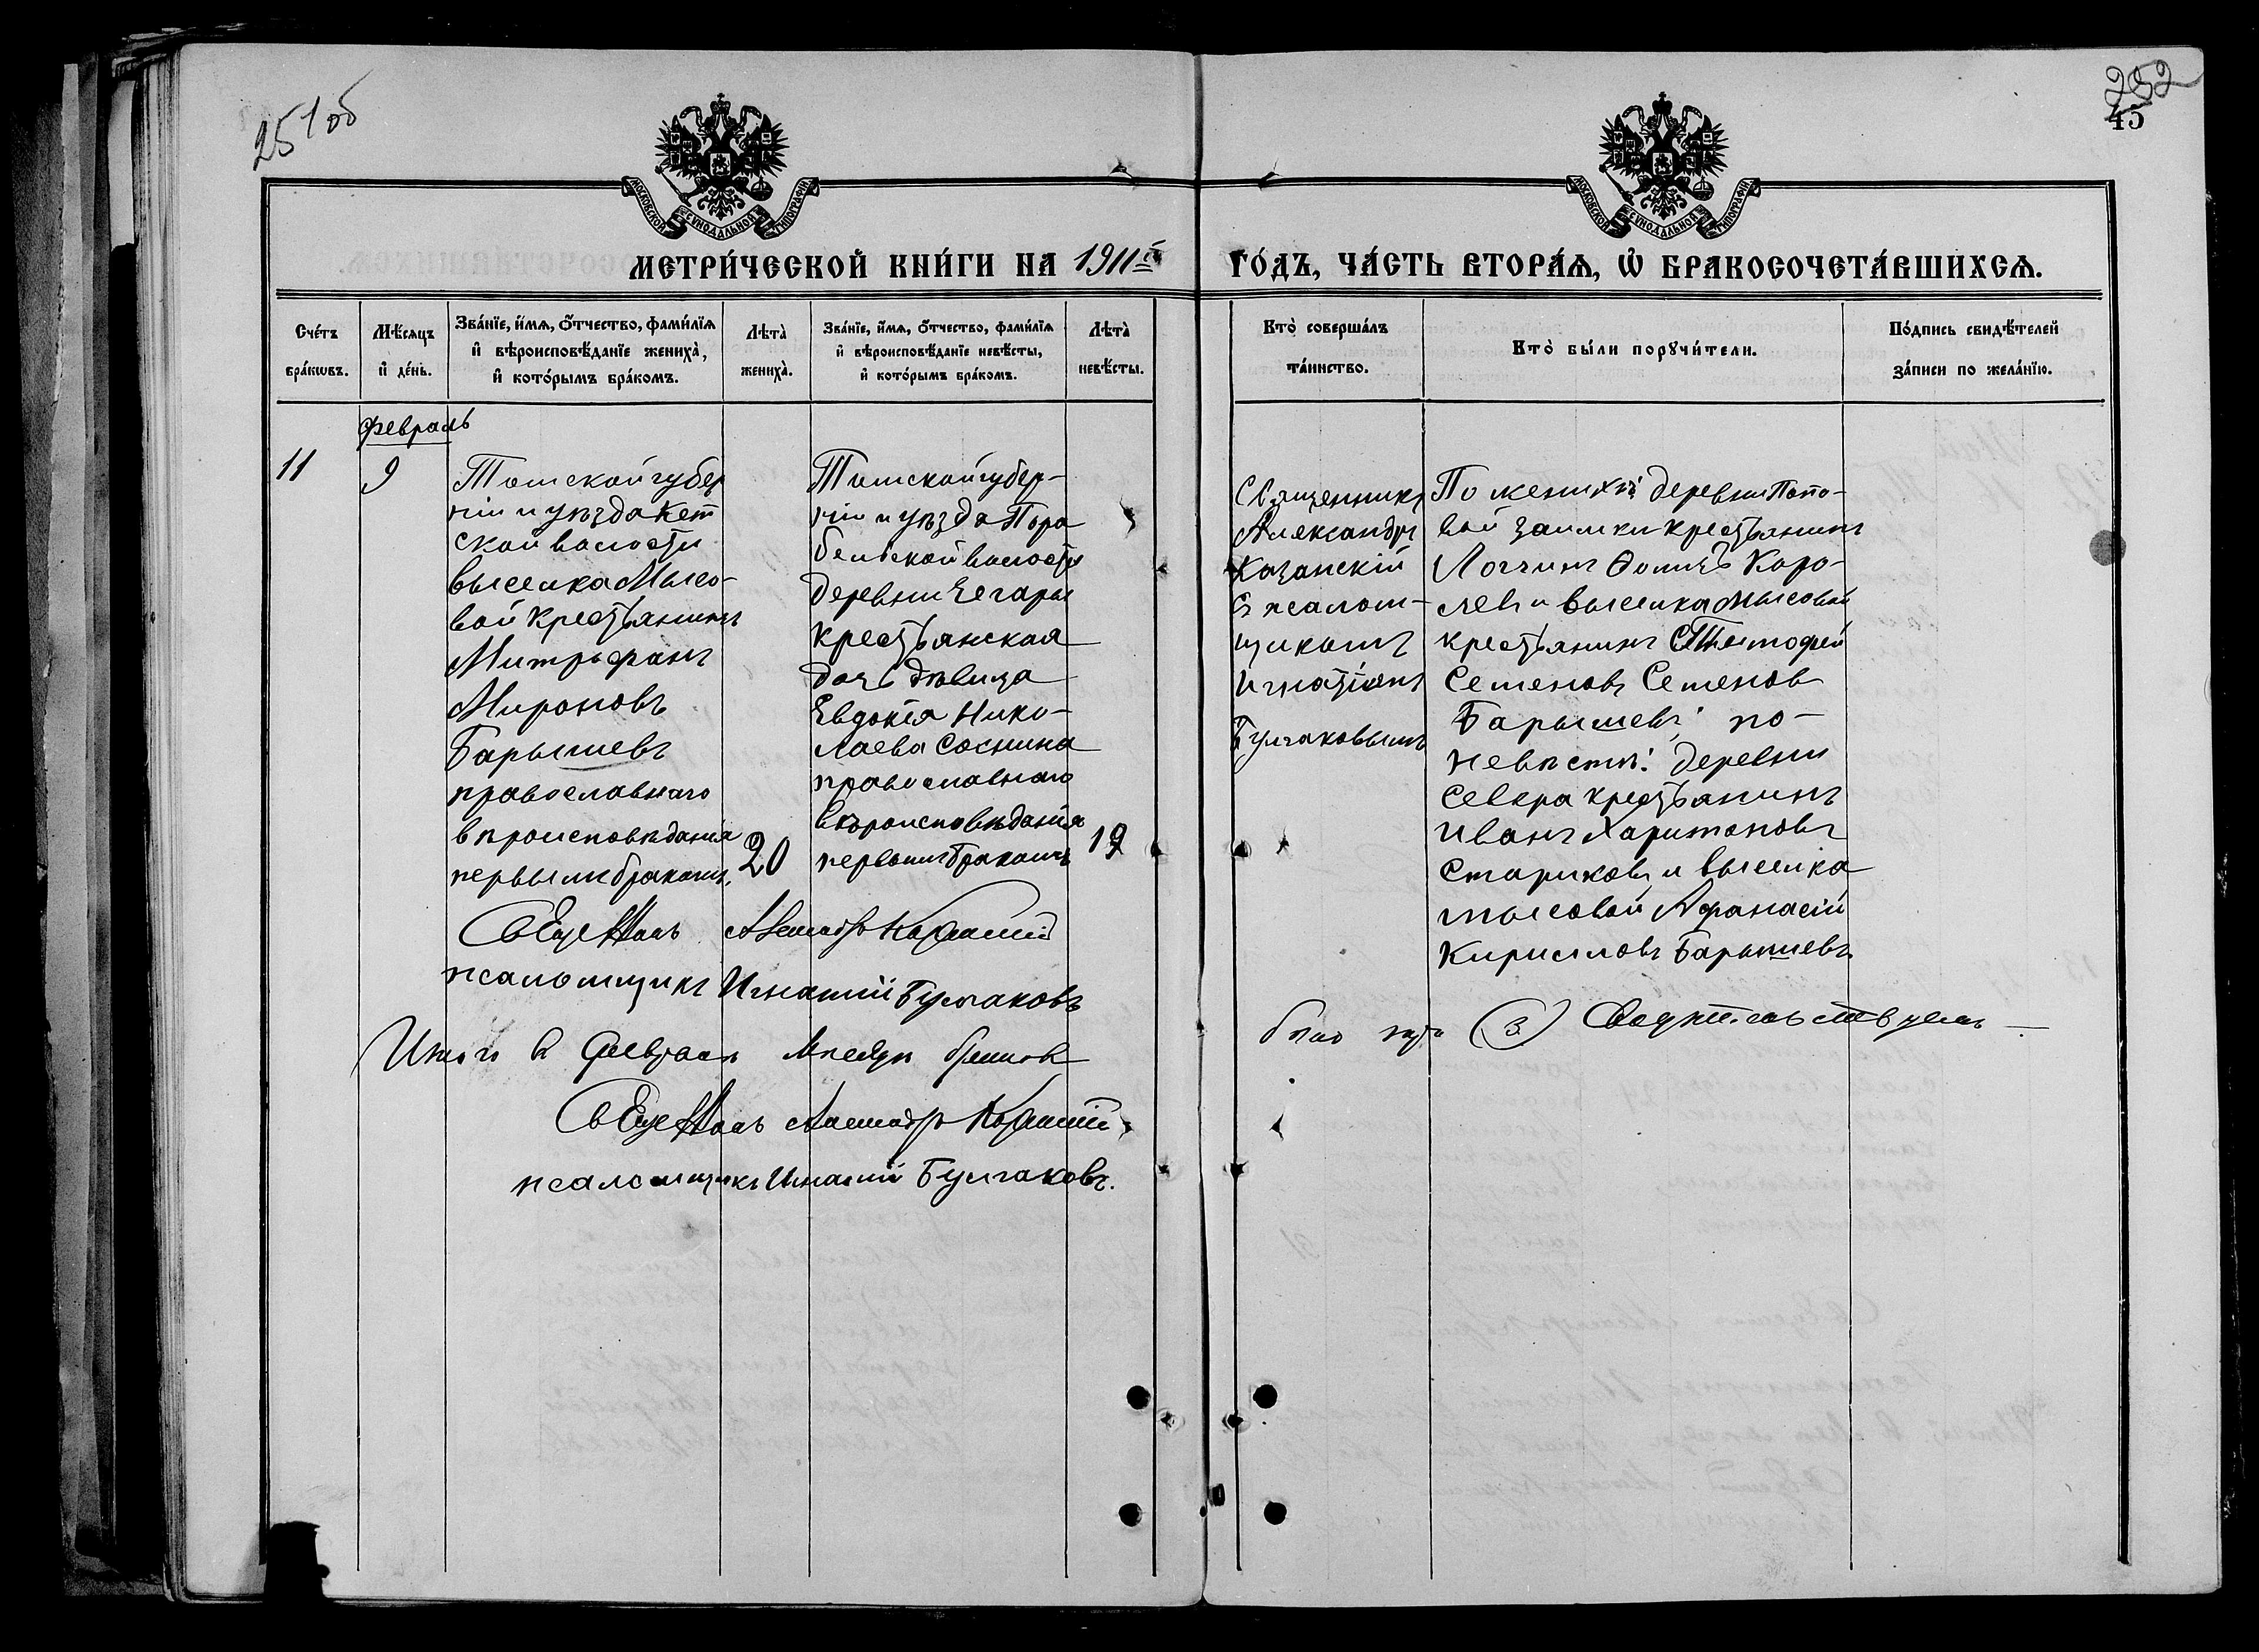 251об
252
45
МОСКОВСКОЙ СѴНОДАЛЬНОЙ ТИПОГРАФІИ
МОСКОВСКОЙ СѴНОДАЛЬНОЙ ТИПОГРАФІИ
МЕТРИ́ЧЕСКОЙ КНИ́ГИ НА 1911й
ГО́ДЪ, ЧА́СТЬ ВТОРА́Ѧ, Ѽ БРАКОСОЧЕТА́ВШИХСѦ.
Сче́тъ
бра́кѡвъ.
Мѣ́сѧцъ
и҆ де́нь.
Зва́нїе, и҆́мѧ, ѻ҆́тчество, фами́лїѧ
и҆ вѣроисповѣ́данїе жениха̀,
и҆ кото́рымъ бра́комъ.
Лѣта̀
жениха̀.
Зва́нїе, и҆́мѧ, ѻ҆́тчество, фами́лїѧ
и҆ вѣроисповѣ́данїе невѣ́сты,
и҆ кото́рымъ бра́комъ.
Лѣта̀
невѣ́сты.
Кто̀ соверша́лъ
та́инство.
Кто̀ бы́ли порꙋчи́тели.
По́дпись свидѣ́телей
за́писи по жела́нїю.
февраль
11
9
Томской губер
ніи и уѣзда Кет
ской волости
выселка Мысо-
вой крестьянинъ
Митрофанъ
Мироновъ
Барышевъ
православнаго
вѣроисповѣданія
первымъ бракомъ.
20
Томской губер-
ніи и уѣзда Пара
бельской волости
деревни Чегары
крестьянская
дочь дѣвица
Евдокія Нико-
лаева Соснина
православнаго
вѣроисповѣданія
первымъ бракомъ
19
Священникъ
Александръ
Казанскій
съ псалом-
щикомъ
Игнатіемъ
Булгаковымъ
По женихѣ: деревни Попо-
вой заимки крестьянинъ
Логгинъ Ѳомичъ Коро-
левъ и выселка Мысовой
крестьянинъ Тимофей
Семеновъ Семенов
Барышевъ; по-
невѣстѣ: деревни
Севера крестьянинъ
Иванъ Харитоновъ
Стариковъ и выселка
Мысовой Афанасій
Кириловъ Барышевъ
Священникъ Александръ Казанскій
псаломщикъ Игнатий Булгаковъ
Итого в Феврале месяце браков
было
(3)
Священникъ Александръ Казанскій
псаломщикъ Игнатий Булгаковъ.